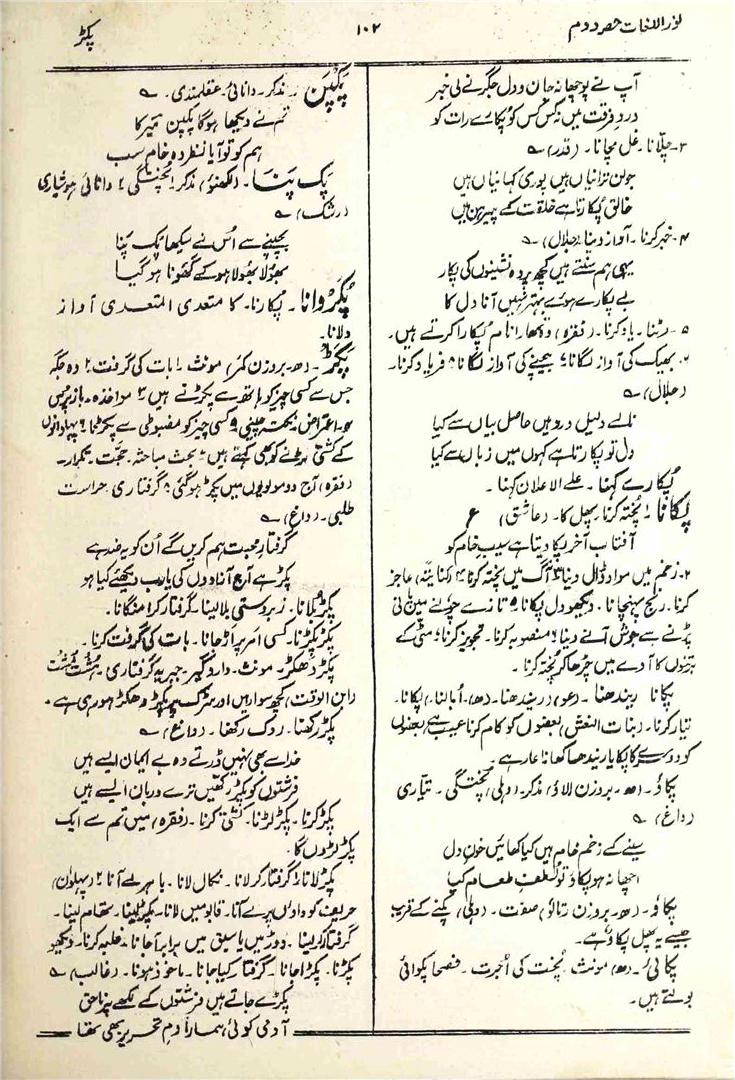 نور اللغات حصہ دوم
۱۰۲
پکڑ
آپ نے پوچھا نہ جان و دل جگر نے لی خبر
دردِ فرقت میں نہ کس کس کو پکارے رات کو
۳۔ چلّانا۔ غل مچانا۔ (قدر) ؎
جولن ترانیاں ہیں پوری کہانیاں ہیں
خالق پکارتا ہے خلقت کے پیرہن میں
۴۔ خبر کرنا۔ آواز دینا (جلال) ؎
یہی ہم سنتے ہیں کچھ پردہ نشینوں کی پکار
بے پکارے ہوئے بہتر نہیں آنا دل کا
۵۔ رٹنا۔ یاد کرنا۔ (فقرہ) وہ تمھارا نام پکارا کرتے ہیں۔
۶۔ بھیک کی آواز لگانا ۷ بیچنے کی آواز لگانا ۸ فریاد کرنا۔
(جلال) ؎
نالے دلیل درد ہیں حاصل بیاں سے کیا
دل تو پکارتا ہے کہوں میں زباں سے کیا
پُکارے کہنا۔ علےٰ الاعلان کہنا۔
پکانا ۱ پُختہ کرنا پھل کا۔ (عاشق) ع
آفتاب آخر پکا دیتا ہے سیبِ خام کو
۲۔ زخم میں مواد ڈال دینا ۳ آگ میں پختہ کرنا ۴ (کنایۃً) عاجز
کرنا۔ رنج پہنچانا۔ دیکھو دل پکانا ۵ تازے چونے میں پانی
پڑنے سے جوش آنے دینا ۶ منصوبہ کرنا۔ تجویز کرنا ۷ مٹی کے
برتنوں کا آوے میں چڑھا کر پُختہ کرنا۔
پکانا ریندھنا۔ (عو) (ریندھنا۔ (ھ)۔ اُبالنا۔) پکانا۔
تیار کرنا۔ (بنات النعش) بعضوں کو کام کرنا عیب ہے بعضوں
کو دوسرے کا پکایا ریندھا کھانا عار ہے۔
پکاؤ۔ (ھ۔ بروزن الاؤ) مذکر۔ (دہلی) پُختگی۔ تیاری
(داغ) ؎
سینے کے زخم خام ہیں کیا کھائیں خونِ دل
اچھا نہ ہو پکاؤ تو لطفِ طعام کیا
پکاؤ۔ (ھ۔ بروزن بتاؤ) صفت۔ (دہلی) پکنے کے قریب
جیسے یہ پھل پکاؤ ہے۔
پکائی۔ (ھ) مونث۔ پُخت کی اُجرت۔ فصحا پکوائی
بولتے ہیں۔
پَکّپن۔ مذکر۔ دانائی۔ عقلمندی۔ ؎
تم نے دیکھا ہوگا پکپن میر کا
ہم کو تو آیا نظر وہ خام سب
پک پنا۔ (لکھنؤ) مذکر ۱ پُختگی ۲ دانائی ہوشیاری
(رشک) ؎
بچپنے سے اُس نے سیکھا پک پنا
بھولا بھولا ہو کے گھونا ہو گیا
پُکروانا۔ پکارنا۔ کا متعدی المتعدی آواز
دلانا۔
پکڑ۔ (ھ۔ بروزن کمر) مونث ۱ بات کی گرفت ۲ وہ جگہ
جس سے کسی چیز کو ہاتھ سے پکڑتے ہیں ۳ مواخذہ۔ باز پرس
۴۔ اعتراض۔ نکتہ چینی ۵ کسی چیز کو مضبوطی سے پکڑنا ۶ پہلوانوں
کے کشتی لڑنے کو بھی کہتے ہیں ۷ بحث مباحثہ۔ حجّت۔ تکرار۔
(فقرہ) آج دو مولویوں میں پکڑ ہوگئی ۸ گرفتاری حراست
طلبی۔ (داغ) ؎
گرفتارِ محبت ہم کریں گے اُن کو یہ ضد ہے
پکڑ ہے آج آزادوں کی یارب دیکھئے کیا ہو
پکڑ بُلانا۔ زبردستی بلا لینا۔ گرفتار کرا منگانا۔
پکڑ پکڑنا۔ کسی امر پر اڑ جانا۔ بات کی گرفت کرنا۔
پکڑ دھکڑ۔ مونث۔ دار و گیر۔ جبریہ گرفتاری۔
(ابن الوقت) کچھ سوار ہیں اور سڑک پر پکڑ دھکڑ ہو رہی ہے۔
پکڑ رکھنا۔ روک رکھنا۔ (داغ) ؎
خدا سے بھی نہیں ڈرتے وہ بے ایمان ایسے ہیں
فرشتوں کو پکڑ رکھیں ترے دربان ایسے ہیں
پکڑ کرنا۔ پکڑ لڑنا۔ کشتی کرنا۔ (فقرہ) میں تم سے ایک
پکڑ لڑوں گا۔
پکڑ لانا ۱ گرفتار کر لانا۔ نکال لانا۔ باہر لے آنا ۲ (پہلوان)
حریف کو داؤں پر لے آنا۔ قابو میں لانا۔ پکڑ لینا۔ تھام لینا۔
گرفتار کر لینا۔ دوڑ میں یا سبق میں برابر آ جانا۔ غلبہ کرنا۔ دیکھو
پکڑنا۔ پکڑا جانا۔ گرفتار کیا جانا۔ ماخوذ ہونا۔ (غالب) ؎
پکڑے جاتے ہیں فرشتوں کے لکھے پر ناحق
آدمی کوئی ہمارا دمِ تحریر بھی تھا